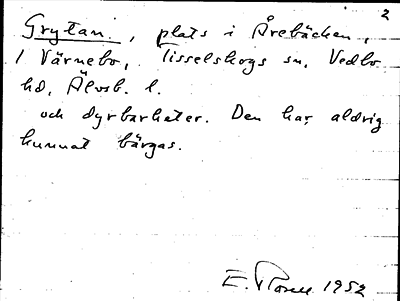 2
Grytan., plats i Årebäcken,
1 Värnebo, Tisselskogs sn, Vedbo
hd, Älvsb. l.
och dyrbarheter. Den har aldrig
kunnat bärgas.
E. 1952